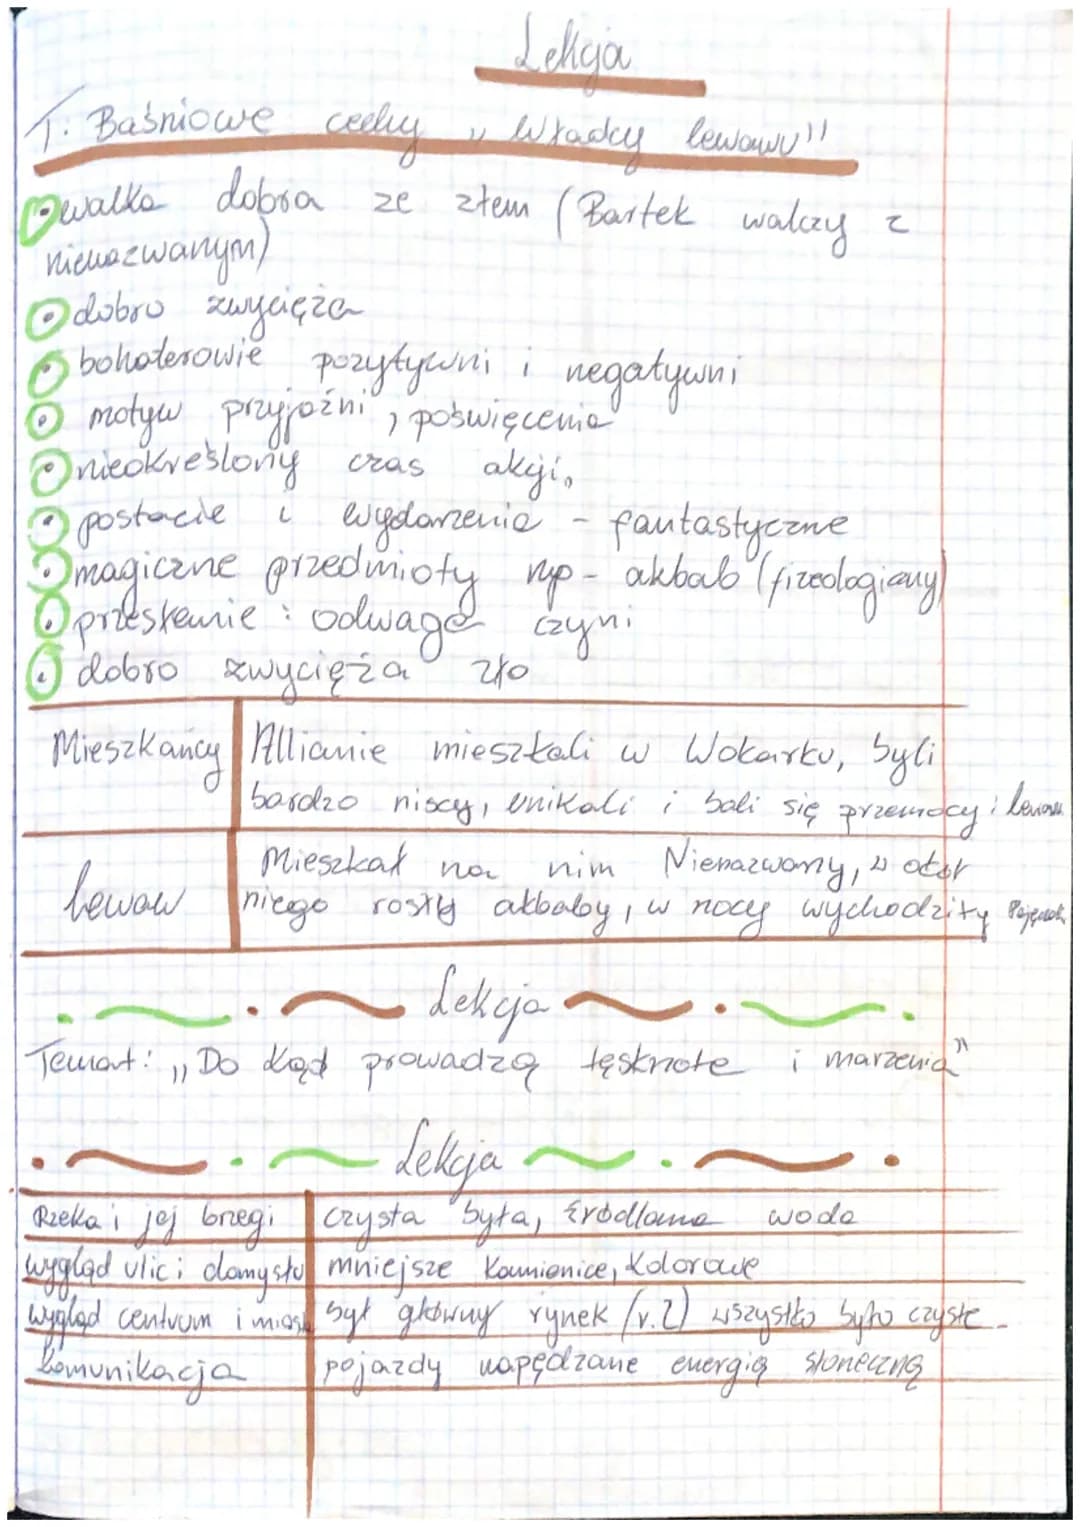 Lekcja
T: Baśniowe cechy „Władcy lewawu"
walka dobra ze złem (Bartek walczy z
nienazwanym)
dobro zwycięża
bohaterowie pozytywni i negatywni
motyw przyjaźni, poświęcenia
nieokreślony czas akcji,
postacie i wydarzenia - fantastyczne
magiczne przedmioty np- akbab
przesłanie: odwaga czyni
dobro zwycięża zło
Mieszkańcy Allianie mieszkali w Wokarku, byli
bardzo niscy, unikali i bali się przemocy i
lewaw Mieszkał na nim Nienazwany,
niego rosły akbaby, w nocy wychodziły
Lekcja
Temat: „Do kąd prowadzą tęsknote i marzenia"
Lekcja
Rzeka i jej brzegi czysta była, źródlana woda
wygląd ulic i domystu mniejsze kamienice, kolorowe
wygląd centrum i miasta był główny rynek (r.2) wszystko było czyste
komunikacja pojazdy napędzane energią słoneczną